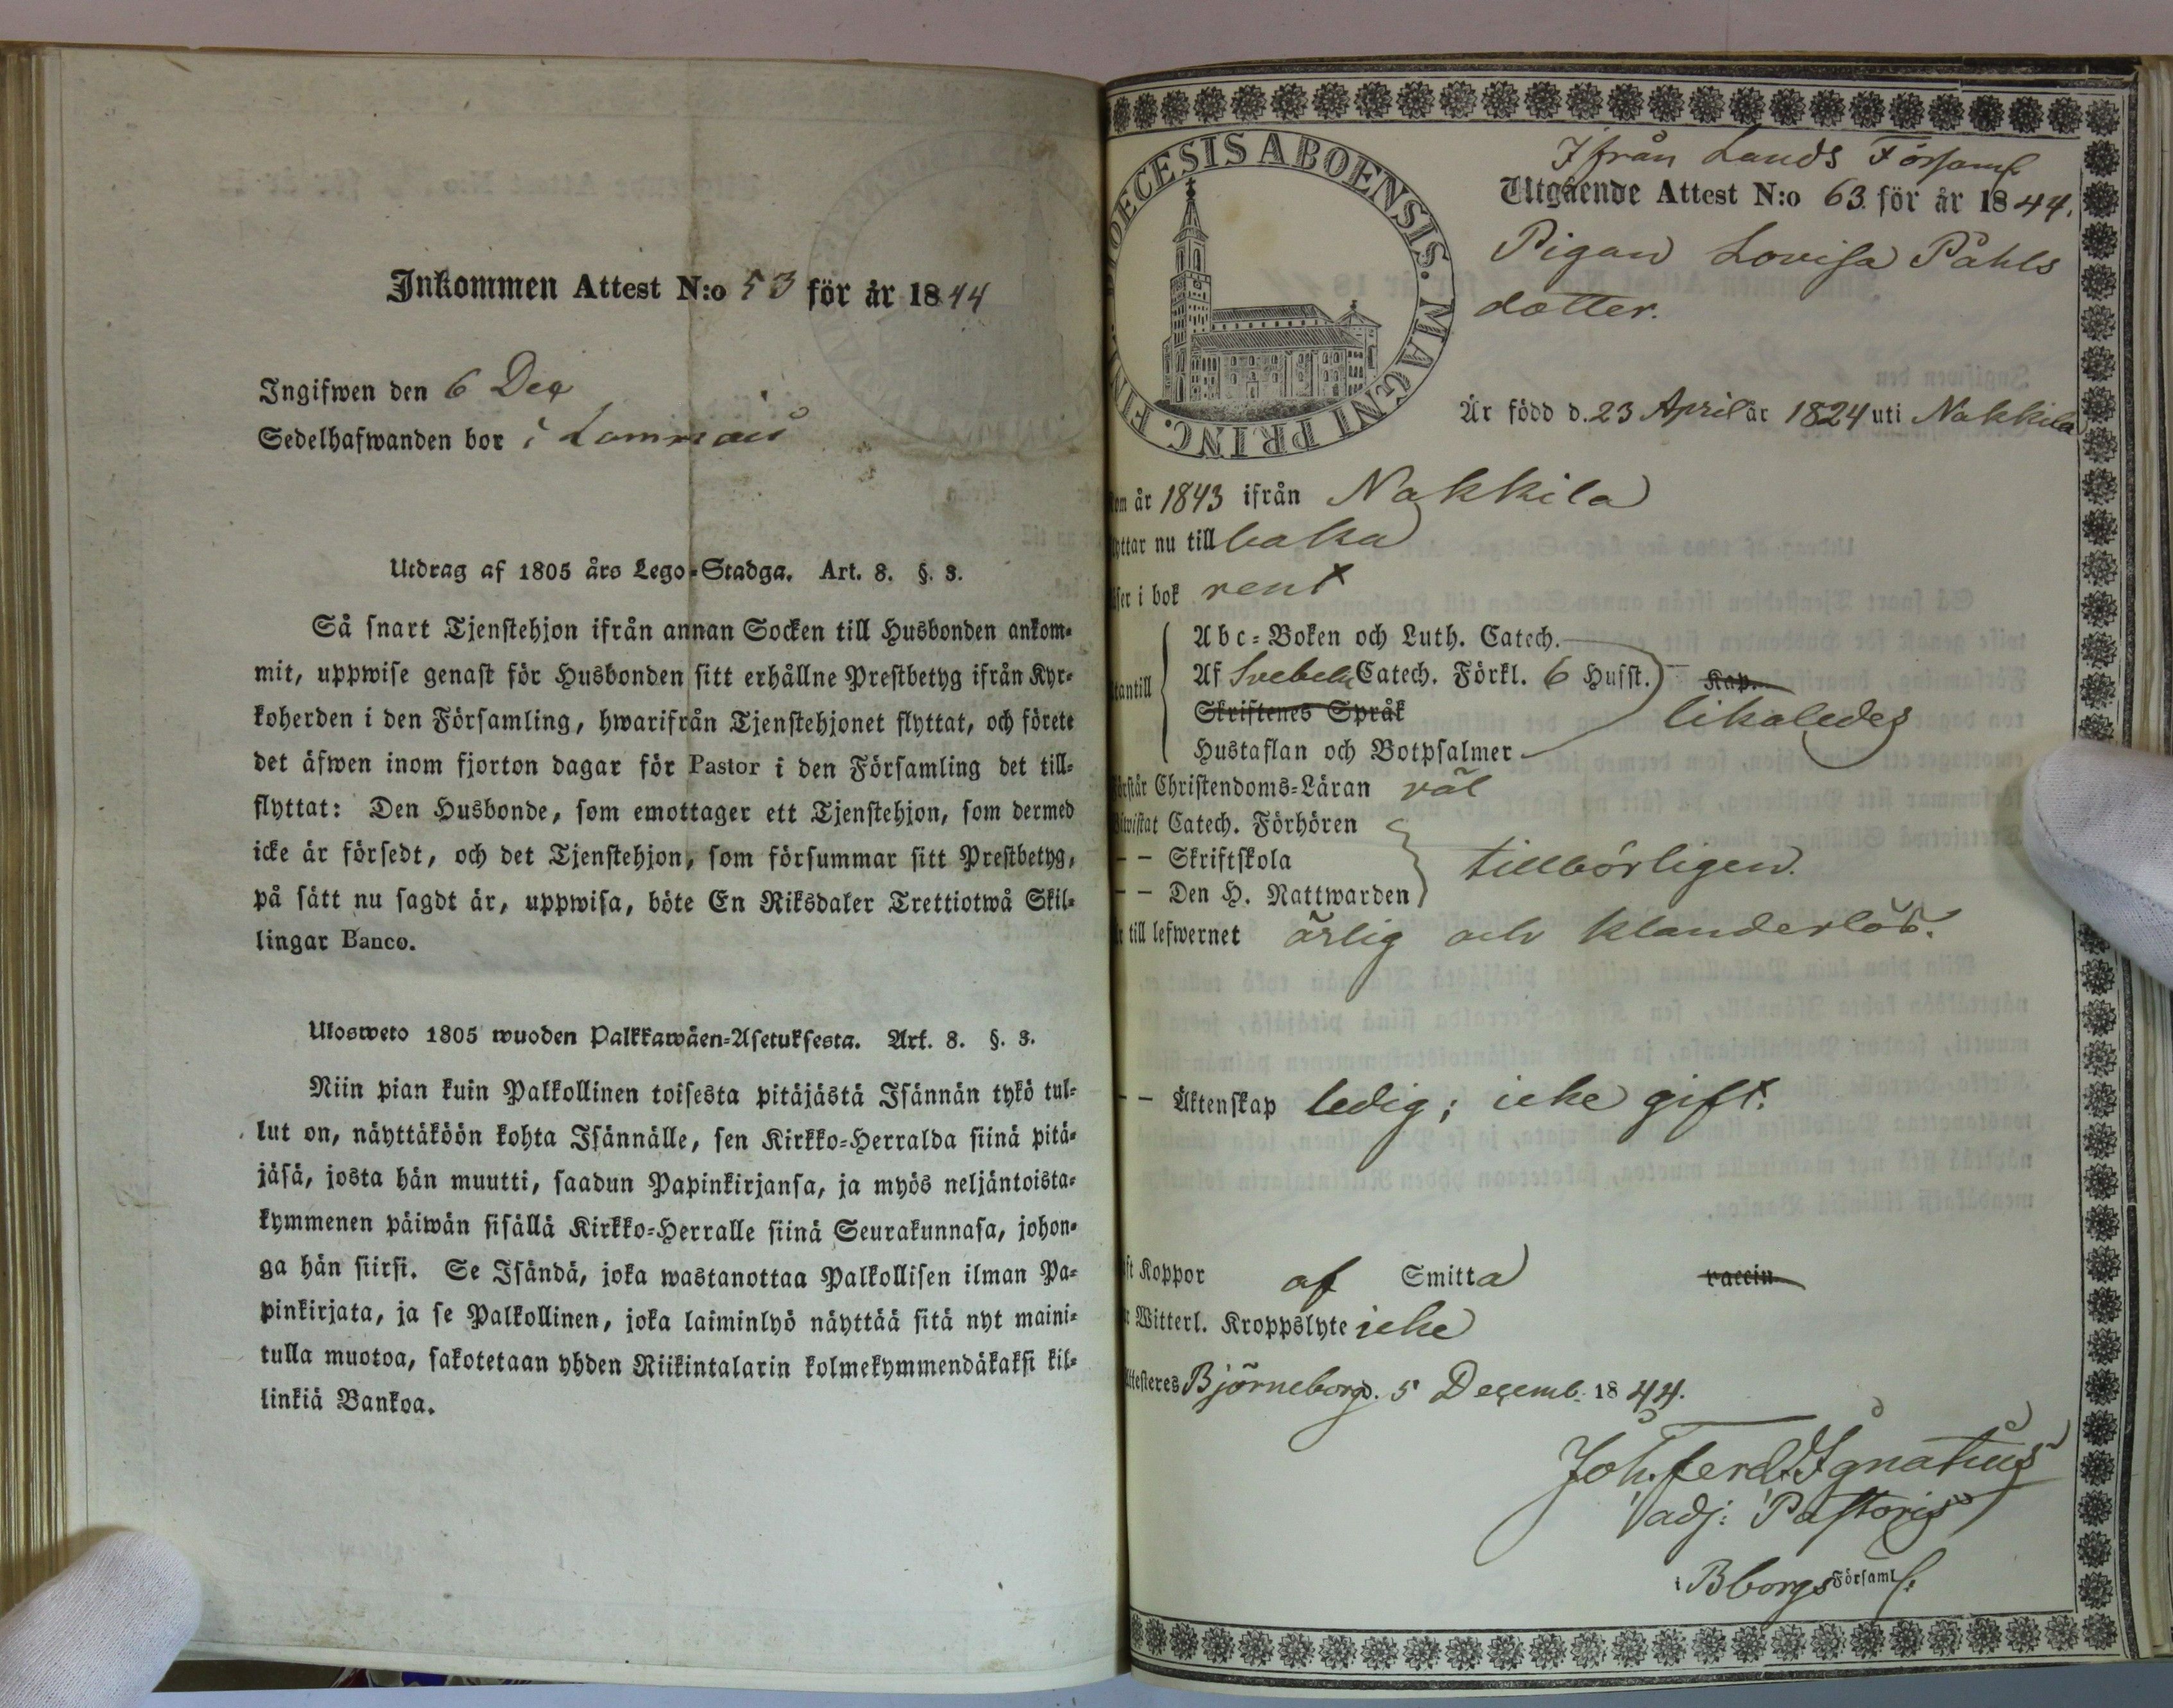 Inkommen Attest N:o 53 för år 1844
Ingifwen den 6 Dec
Sedelhafwanden bor i Lammais
Utdrag af 1805 års Lego-Stadga. Art. 8. §. 3.
Så snart Tjenstehjon ifrån annan Socken till Husbonden ankom-
mit, uppwise genast för Husbonden sitt erhållne Prestbetyg ifrån Kyr-
koherden i den Församling, hwarifrån Tjenstehjonet flyttat, och förete
det äfwen inom fjorton dagar för Pastor i den Församling det till-
flyttat: Den Husbonde, som emottager ett Tjenstehjon, som dermed
icke är försedt, och det Tjenstehjon, som försummar sitt Prestbetyg,
på sätt nu sagdt är, uppwisa, böte En Riksdaler Trettiotwå Skil-
lingar Banco.
Ulosweto 1805 wuoden Palkkawäen-Asetuksesta. Art. 8. §. 3.
Niin pian kuin Palkollinen toisesta pitäjästä Isännän tykö tul-
lut on, näyttäköön kohta Isännälle, sen Kirkko-Herralda siinä pitä-
jäsä, josta hän muutti, saadun Papinkirjansa, ja myös neljäntoista-
kymmenen päiwän sisällä Kirkko-Herralle siinä Seurakunnasa, johon-
ga hän siirsi. Se Isändä, joka wastanottaa Palkollisen ilman Pa-
pinkirjata, ja se Palkollinen, joka laiminlyö näyttää sitä nyt maini-
tulla muotoa, sakotetaan yhden Riikintalarin kolmekymmendäkaksi kil-
linkiä Bankoa.
DIOECESIS ABOENSIS. MAGNI PRINC. FINL.
Ifrån Lands Församl.
Utgående Attest N:o 63 för år 1844.
Pigan Lovisa Påhls
dotter.
Är född d. 23 April år 1824 uti Nakkila
om år 1843 ifrån Nakkila
yttar nu till baka
äser i bok rent
Abc-Boken och Luth. Catech.
Af Svebelii Catech. Förkl. 6 Hufst. Kap.
tantill
Skriftenes Språk likaledes
Hustaflan och Botpsalmer
örstår Christendoms-Läran väl
iwistat Catech. Förhören
– – Skriftskola tillbörligen.
– – Den H. Nattwarden
r till lefwernet ärlig och klanderlös.
– – Äktenskap ledig; icke gift.
ft Koppor af Smitta vaccin
r Witterl. Kroppslyte icke
ttesteres Björneborg d. 5 Decemb. 1844.
Joh. Ferd. Ignatius
adj: Pastoris
i Bborgs Församl.